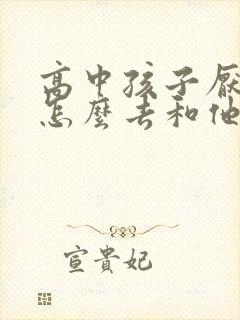 高中孩子厭
怎麼去和他
宣貴妃